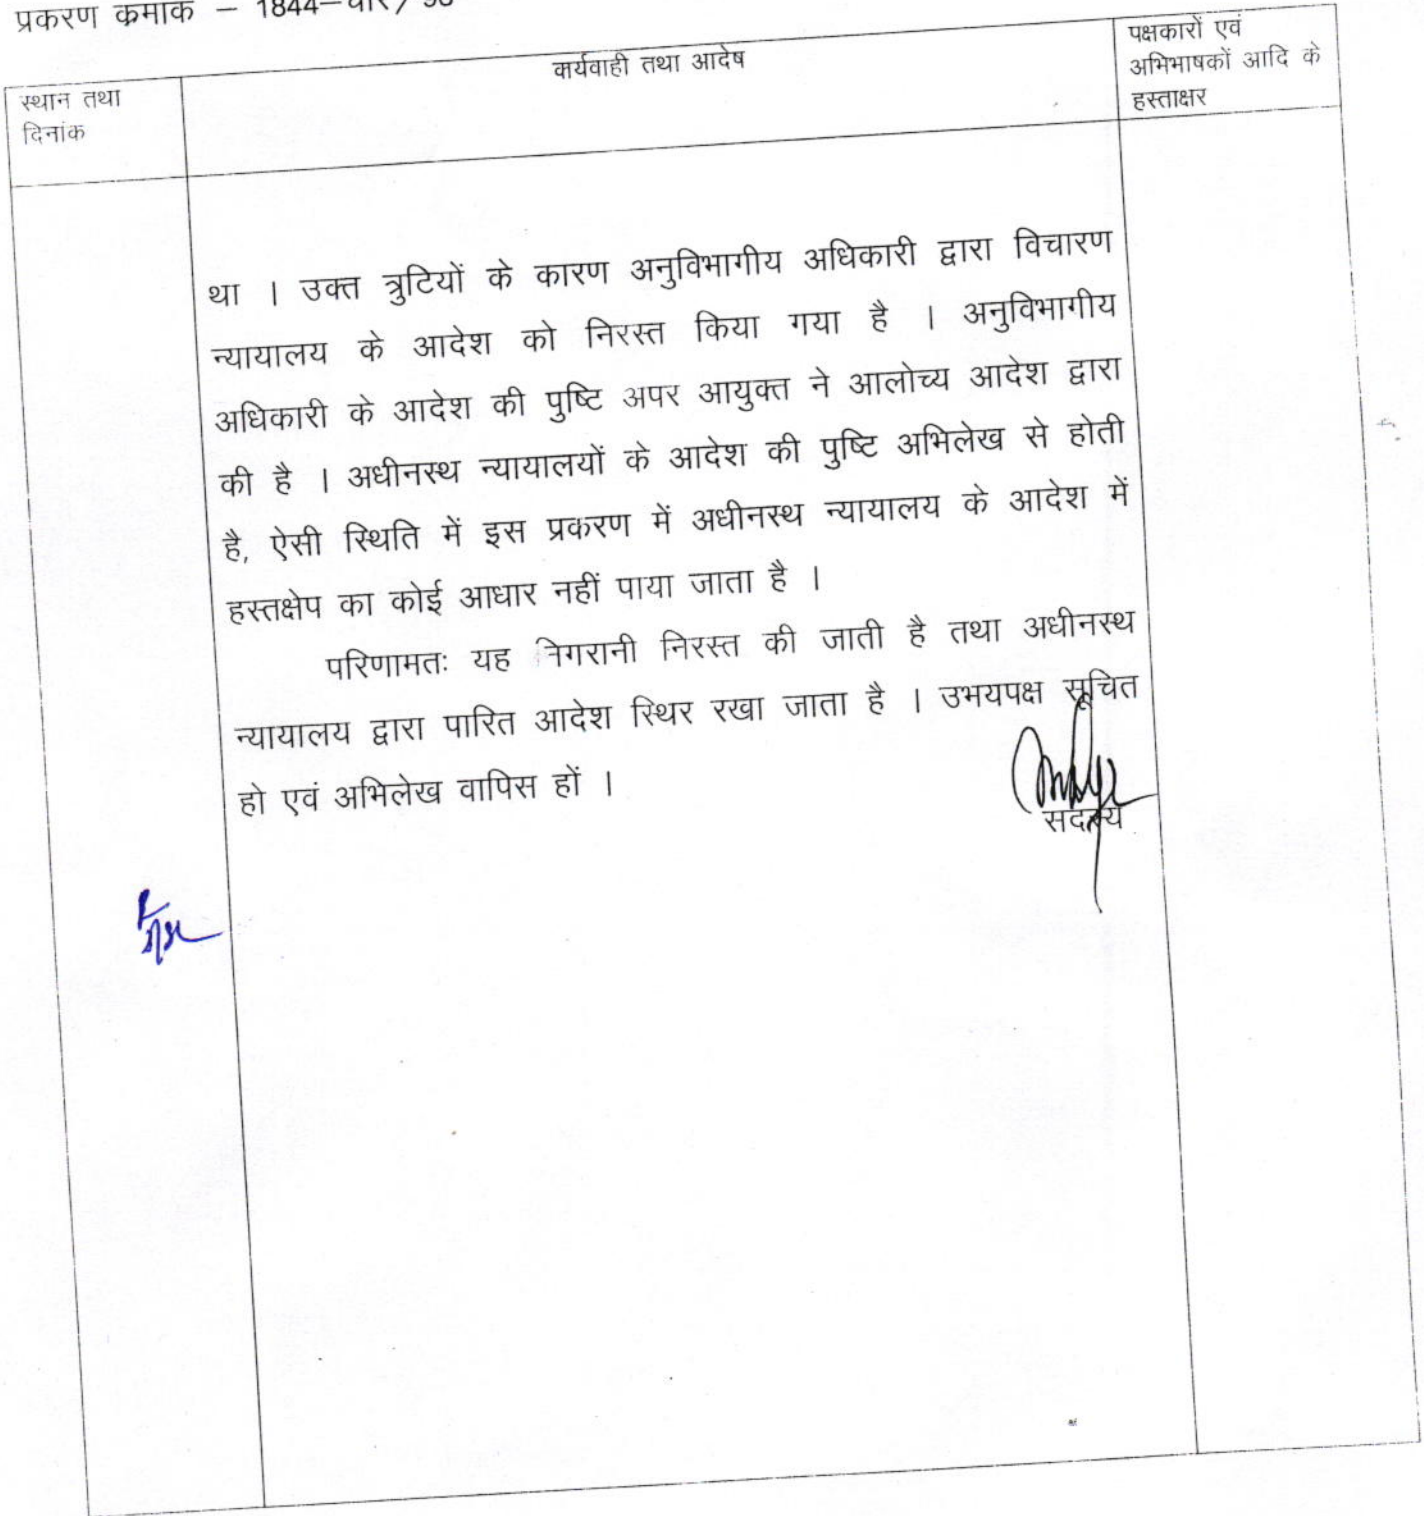 प्रकरण क्रमांक – 1844–चार/
स्थान तथा
दिनांक
कार्यवाही तथा आदेष
पक्षकारों एवं
अभिभाषकों आदि के
हस्ताक्षर
था । उक्त त्रुटियों के कारण अनुविभागीय अधिकारी द्वारा विचारण
न्यायालय के आदेश को निरस्त किया गया है । अनुविभागीय
अधिकारी के आदेश की पुष्टि अपर आयुक्त ने आलोच्य आदेश द्वारा
की है । अधीनस्थ न्यायालयों के आदेश की पुष्टि अभिलेख से होती
है, ऐसी स्थिति में इस प्रकरण में अधीनस्थ न्यायालय के आदेश में
हस्तक्षेप का कोई आधार नहीं पाया जाता है ।
परिणामतः यह निगरानी निरस्त की जाती है तथा अधीनस्थ
न्यायालय द्वारा पारित आदेश स्थिर रखा जाता है । उभयपक्ष सूचित
हो एवं अभिलेख वापिस हों ।
सदस्य